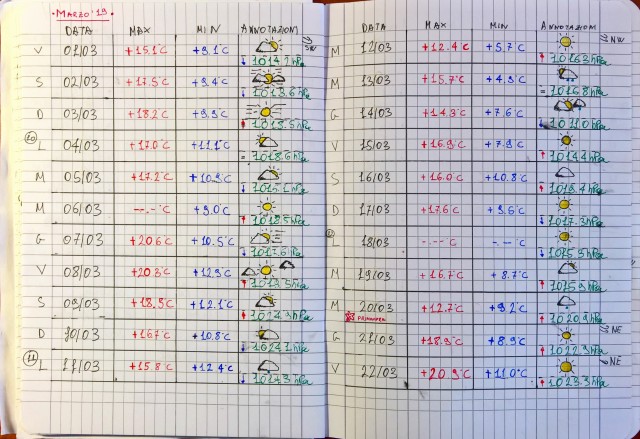 MARZO '19
DATA MAX MIN ANNOTAZIONI
V 01/03 +15.1°C +9.1°C SW
↓ 1014.7 hPa
S 02/03 +17.5°C +9.4°C
↓ 1013.6 hPa
D 03/03 +18.2°C +9.9°C
↑ 1019.5 hPa
10 L 04/03 +17.0°C +11.1°C
= 1018.6 hPa
M 05/03 +17.2°C +10.9°C
↓ 1015.1 hPa
M 06/03 --.-°C +9.0°C
↑ 1018.5 hPa
G 07/03 +20.6°C +10.5°C
↓ 1017.6 hPa
V 08/03 +20.3°C +12.9°C
↑ 1019.5 hPa
S 09/03 +18.9°C +12.1°C
↑ 1024.3 hPa
D 10/03 +16.7°C +10.8°C
↓ hPa
11 L 11/03 +15.8°C +12.4°C
↓ 1014.3 hPa
DATA MAX MIN ANNOTAZIONI
M 12/03 +12.4°C +5.7°C NW
↑ 1016.3 hPa
M 13/03 +15.7°C +4.9°C
= 1016.8 hPa
G 14/03 +14.3°C +7.6°C
↓ 1011.0 hPa
V 15/03 +16.9°C +7.9°C
↑ 1014.4 hPa
S 16/03 +16.0°C +10.8°C
↑ 1019.4 hPa
D 17/03 +17.6°C +9.6°C
↓ 1017.3 hPa
18/03 --.-°C -.-°C
↓ 1015.5 hPa
M 19/03 +16.7°C +8.7°C
↑ 1015.9 hPa
M 20/03 +12.7°C +9.2°C
PRIMAVERA ↑ 1020.9 hPa
G 21/03 +18.9°C +8.9°C NE
↑ 1022.9 hPa
V 22/03 +20.9°C +11.0°C NE
↑ 1023.3 hPa